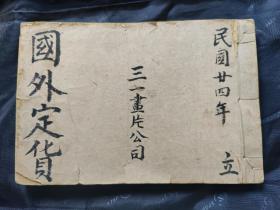 民國廿四年 立
三一畫片公司
國外定貨